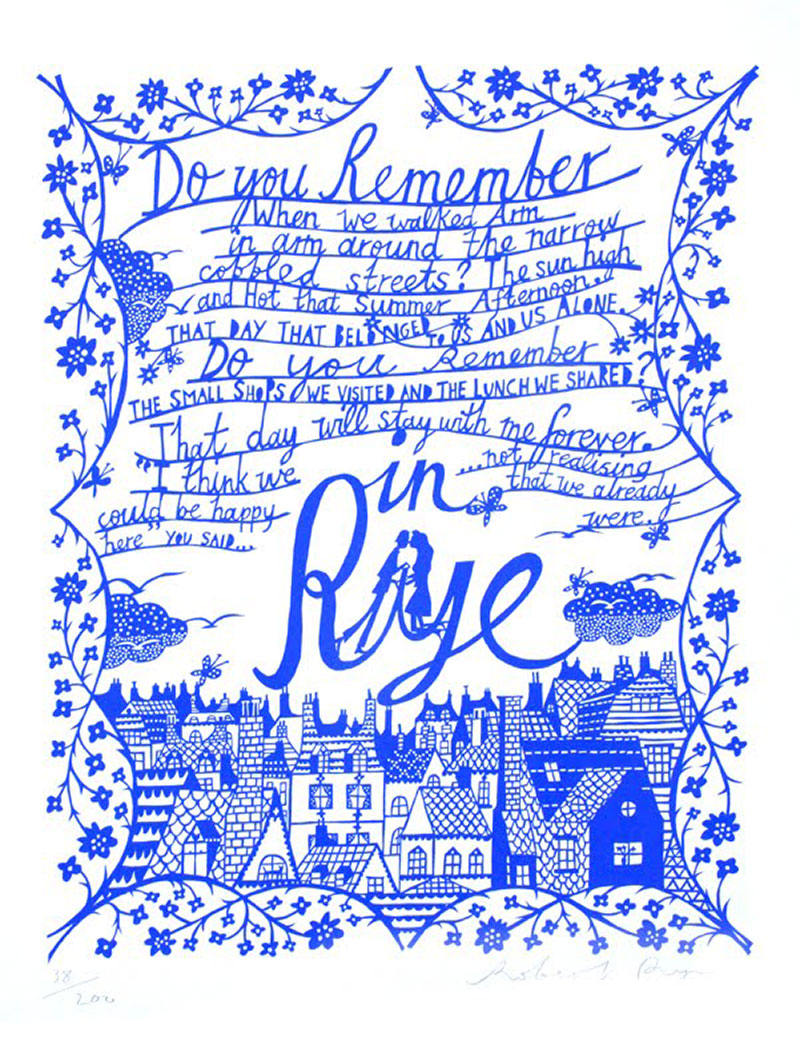 Do you Remember
When we walked Arm
in arm around the narrow
cobbled streets? The sun high
and Hot that Summer Afternoon.
THAT DAY THAT BELONGED TO US AND US ALONE.
Do you Remember
THE SMALL SHOPS WE VISITED AND THE LUNCH WE SHARED?
That day will stay with me forever.
in
Rye
"I think we
could be happy
here" YOU SAID...
...not realising
that we already
were.
38/200
Robert Ryan